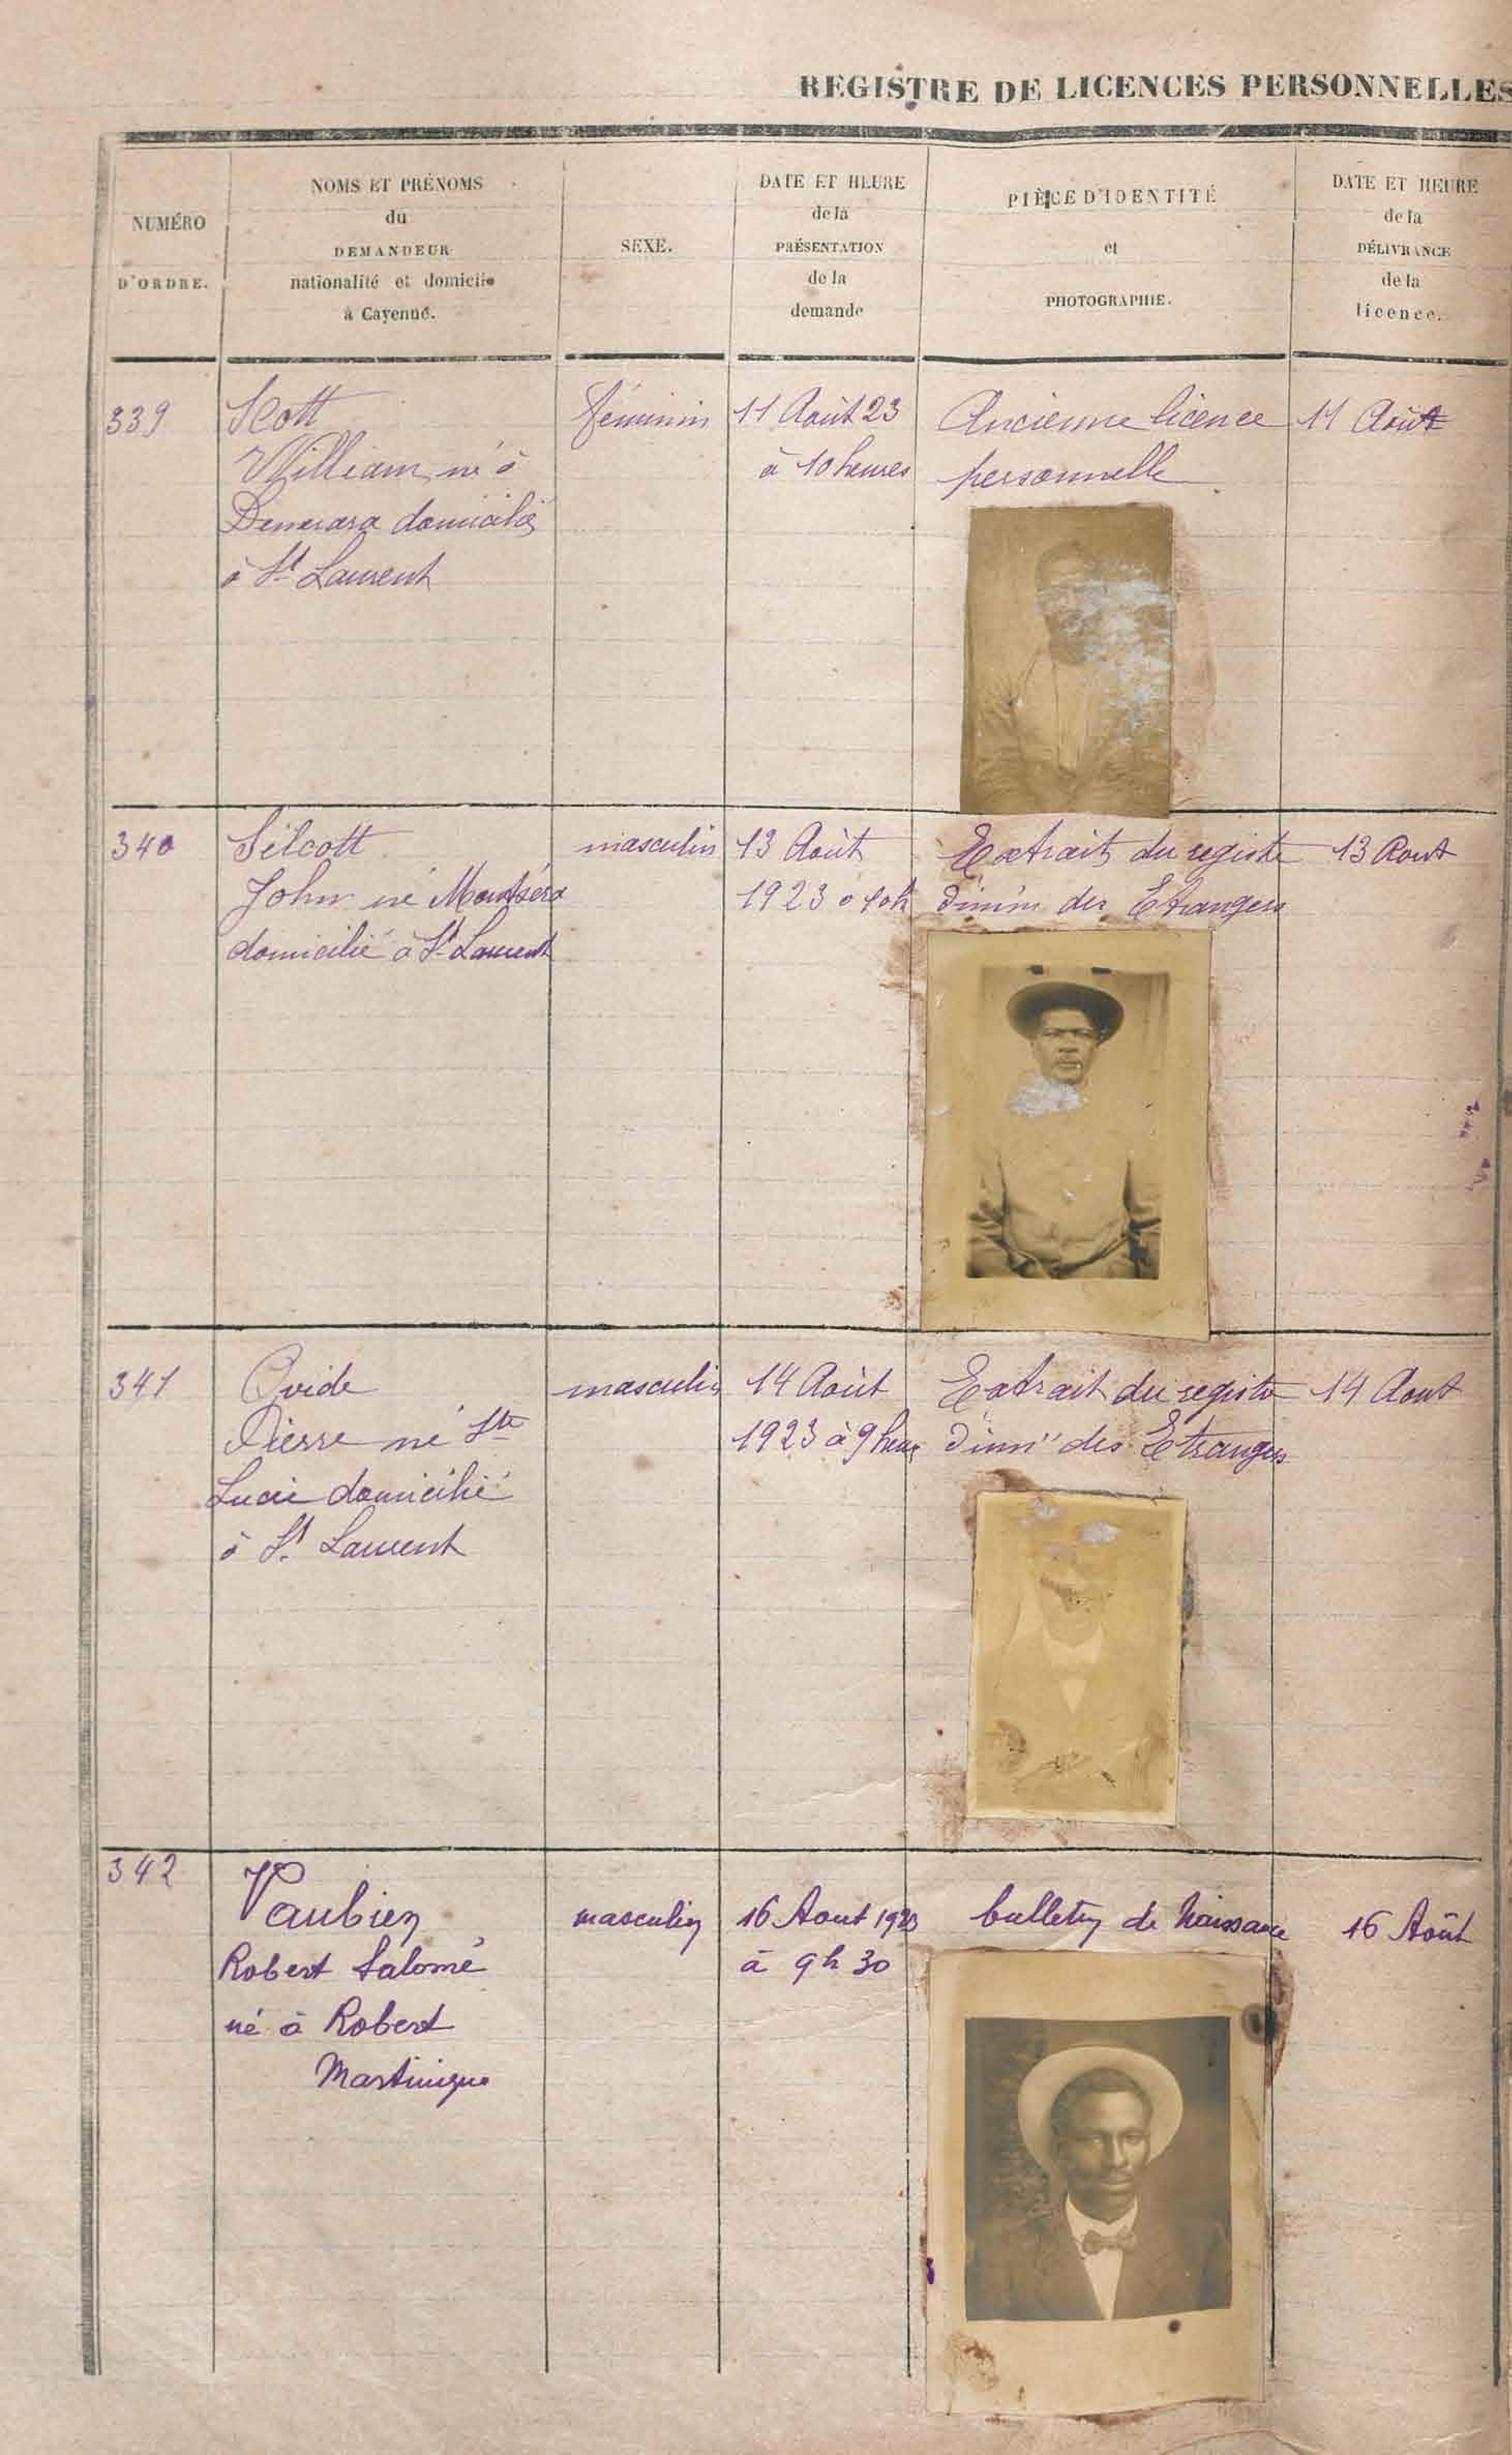 REGISTRE DE LICENCES PERSONNELLES
NUMÉRO
D'ORDRE.
NOMS ET PRÉNOMS
du
DEMANDEUR
nationalité et domicile
à Cayenne.
SEXE.
DATE ET HEURE
de la
PRÉSENTATION
de la
demande
PIÈCE D'IDENTITÉ
et
PHOTOGRAPHIE.
DATE ET HEURE
de la
DÉLIVRANCE
de la
licence.
339
Scott
William né à
Demerara domicilié
à St Laurent
féminin
11 Août 23
à 10 heures
Ancienne licence
personnelle
11 Août
340
Silcott
John né Montséra
domicilié à St Laurent
masculin
13 Août
1923 à 10h
Extrait du registre
d'imm des Etrangers
13 Aout
341
Ovide
Pierre né Ste
Lucie domicilié
à St Laurent
masculin
14 Août
1923 à 9 heures
Extrait du registre
d'imm des Etrangers
14 Aout
342
Vaubien
Robert Salomé
né à Robert
Martinique
masculin
16 Aout 1923
à 9h 30
bulletin de Naissance
16 Août